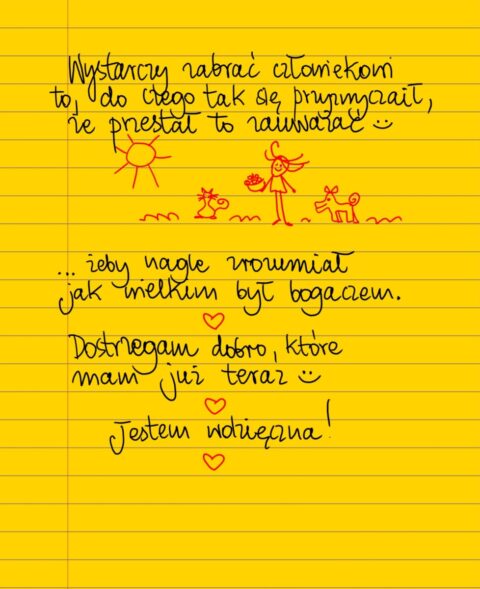 Wystarczy zabrać człowiekowi
to, do czego tak się przyzwyczaił,
że przestał to zauważać :)
... żeby nagle zrozumiał
jak wielkim był bogaczem.
Dostrzegam dobro, które
mam już teraz :)
Jestem wdzięczna!